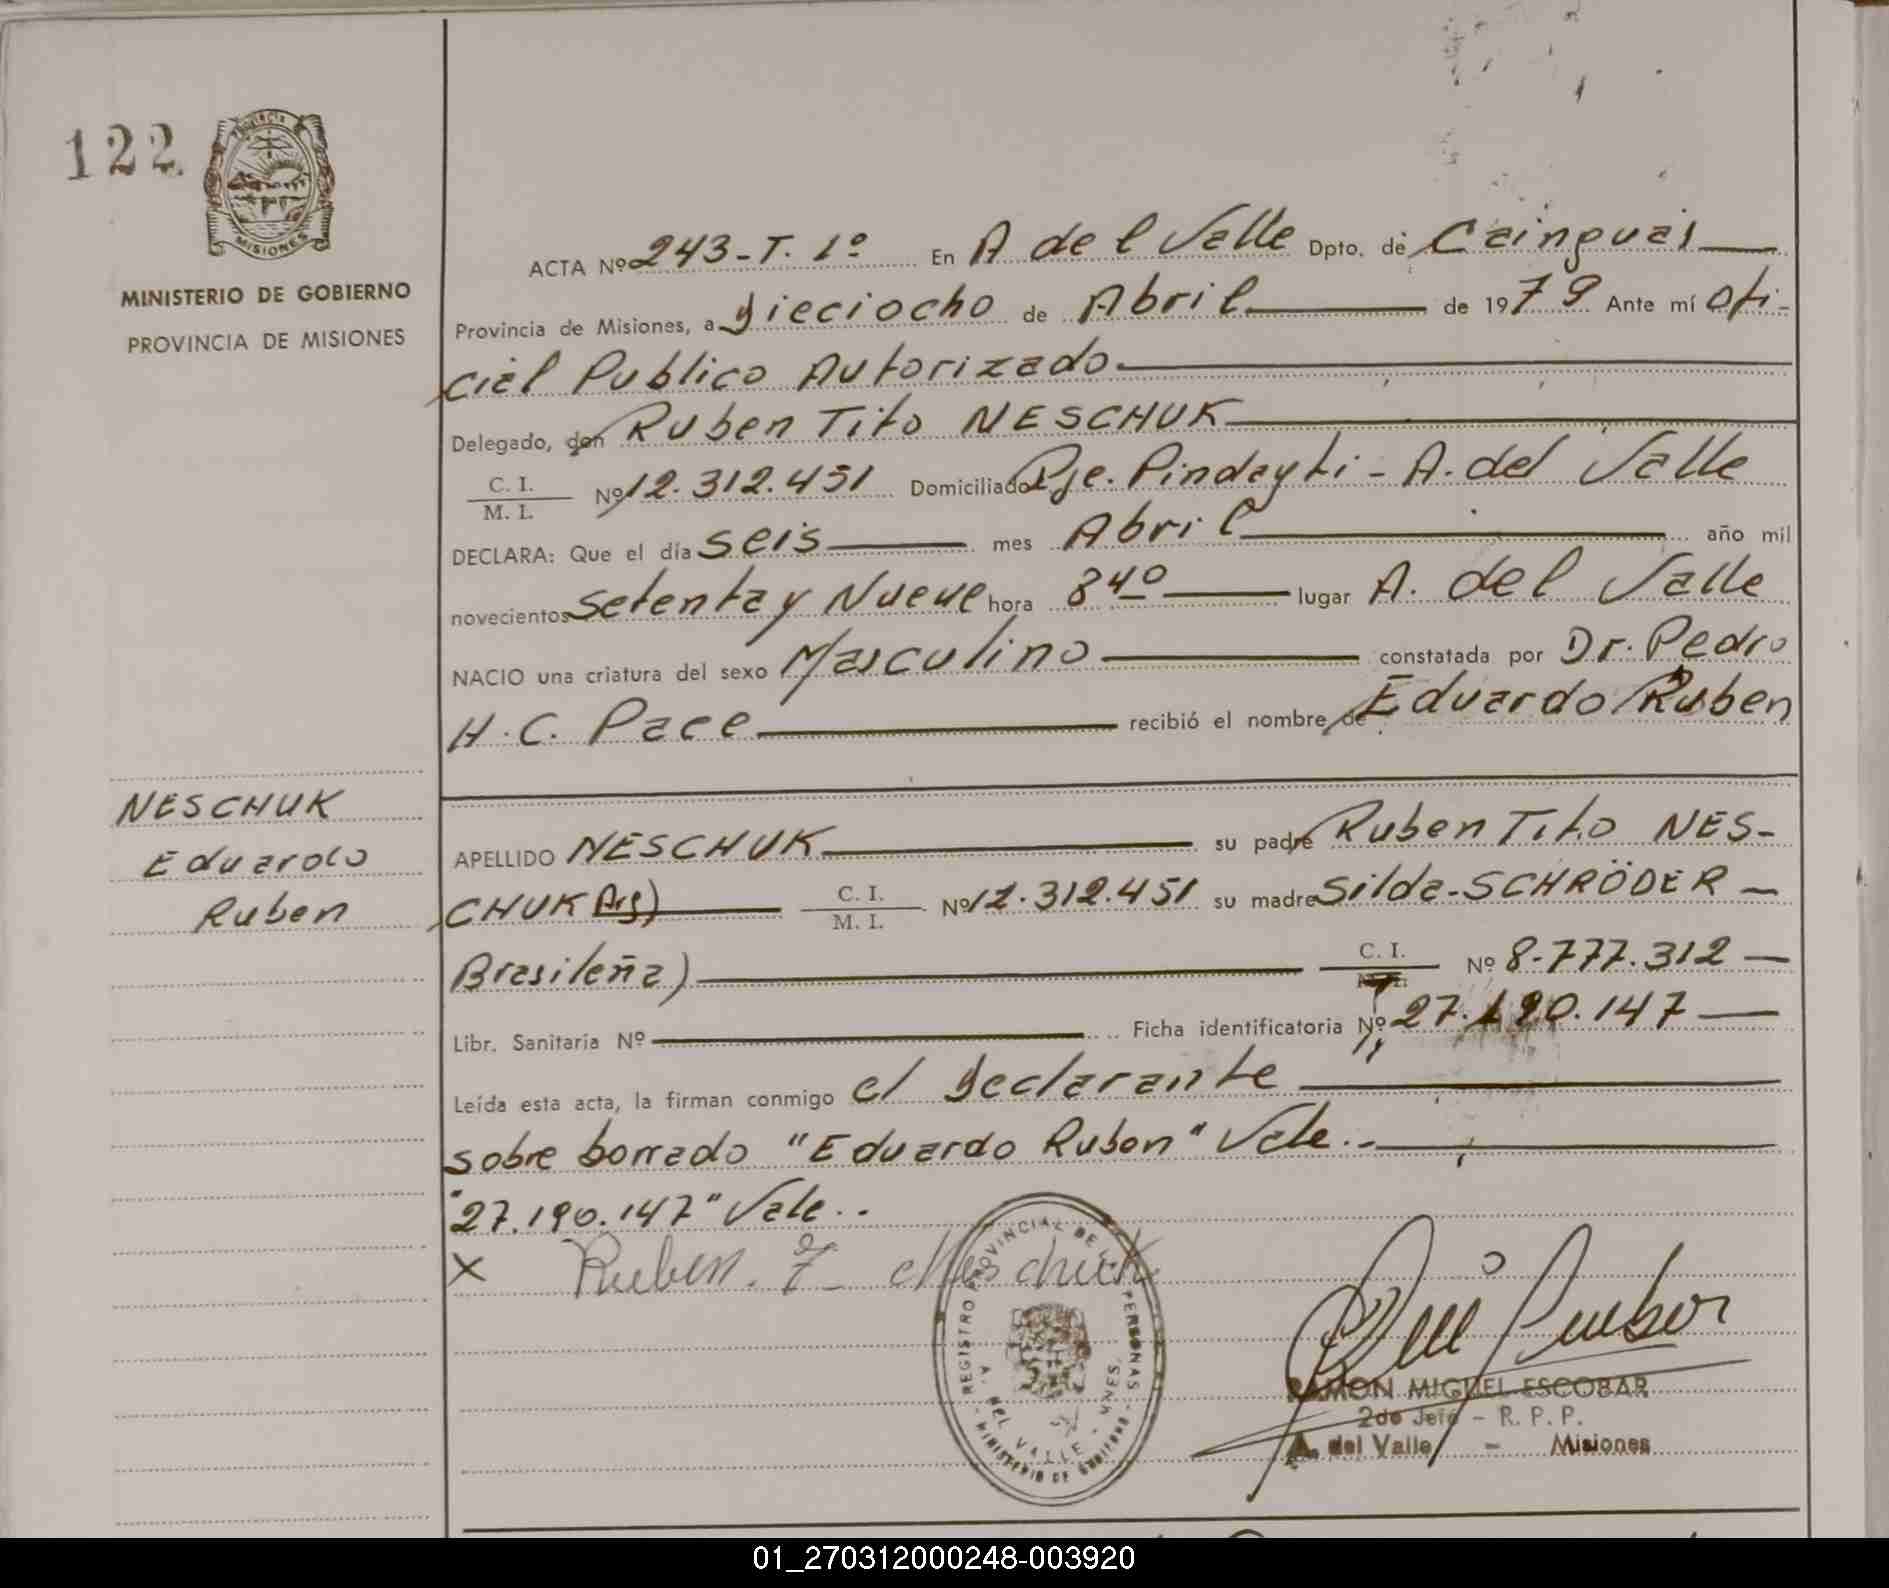 122
PROVINCIA
MISIONES
MINISTERIO DE GOBIERNO
PROVINCIA DE MISIONES
ACTA Nº 243-T. 1º En A del Valle Dpto. de Cainguás
Provincia de Misiones, a Dieciocho de Abril de 1979 Ante mí ofi-
cial Publico Autorizado
Delegado, don Ruben Tito NESCHUK
C. I.
M. I. Nº 12.312.451 Domiciliado Pje. Pindayti - A. del Valle
DECLARA: Que el día seis mes Abril año mil
novecientos setenta y Nueve hora 8 40 lugar A. del Valle
NACIO una criatura del sexo Masculino constatada por Dr. Pedro
H. C. Pace recibió el nombre de Eduardo Ruben
NESCHUK
Eduardo
Ruben
APELLIDO NESCHUK su padre Ruben Tito NES-
CHUK Arg) C. I.
M. I. Nº 12.312.451 su madre Silda-SCHRÖDER
Brasileña) C. I. Nº 8-777.312
Libr. Sanitaria Nº Ficha identificatoria Nº 27.190.147
Leída esta acta, la firman conmigo el Declarante
sobre borrado "Eduardo Ruben" Vale..
"27.190.147" Vale..
X Ruben. T Neschuk
REGISTRO PROVINCIAL DE PERSONAS
A. DEL VALLE - MNES.
MINISTERIO DE GOBIERNO
RAMON MIGUEL ESCOBAR
2do Jefe - R. P. P.
A. del Valle - Misiones
01_270312000248-003920